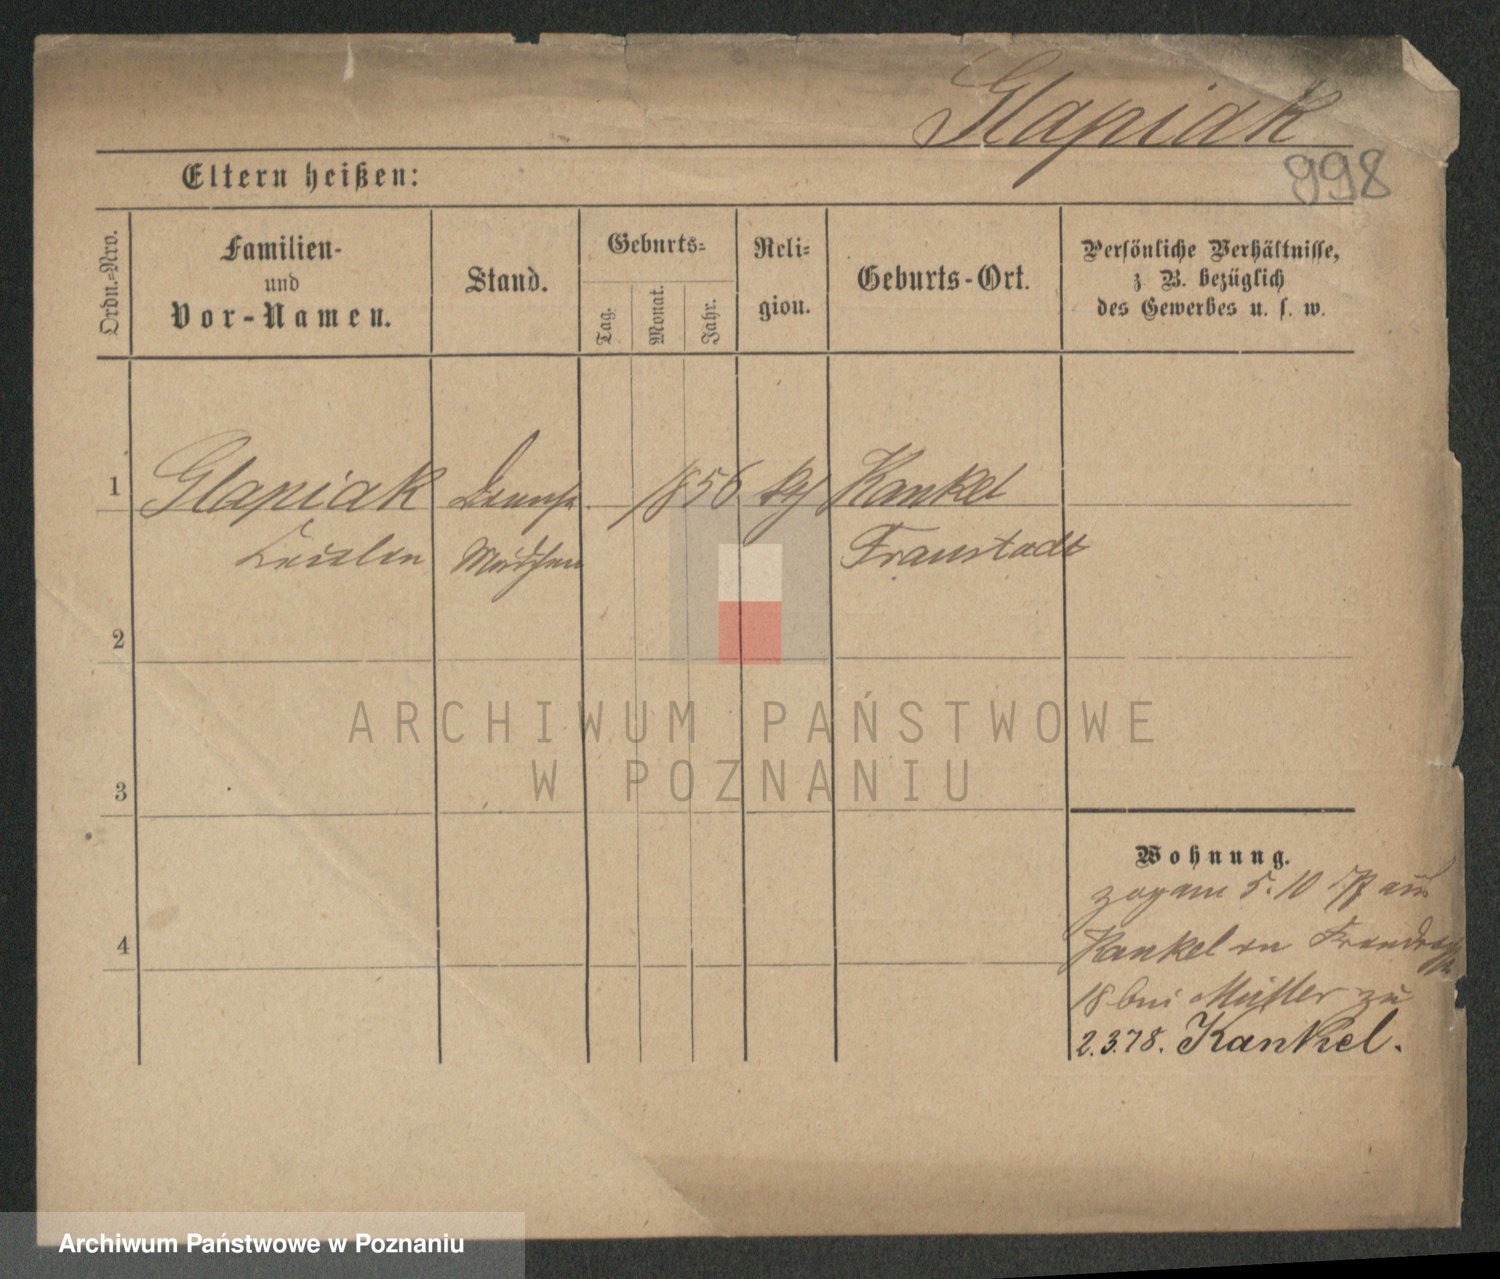 Glapiak
998
Eltern heißen:
Ordn.=Nro.
Familien-
und
Vor-Namen.
Stand.
Geburts=
Tag.
Monat.
Jahr.
Reli=
gion.
Geburts-Ort.
Persönliche Verhältnisse,
z. B. bezüglich
des Gewerbes u. s. w.
1 Glapiak 1856 Kankel
Fraustadt
2
3
4
Wohnung.
zog am 5.10 77 aus
Kankel
18 bei Müller zu
2.3.78. Kankel.
ARCHIWUM PAŃSTWOWE
W POZNANIU
Archiwum Państwowe w Poznaniu